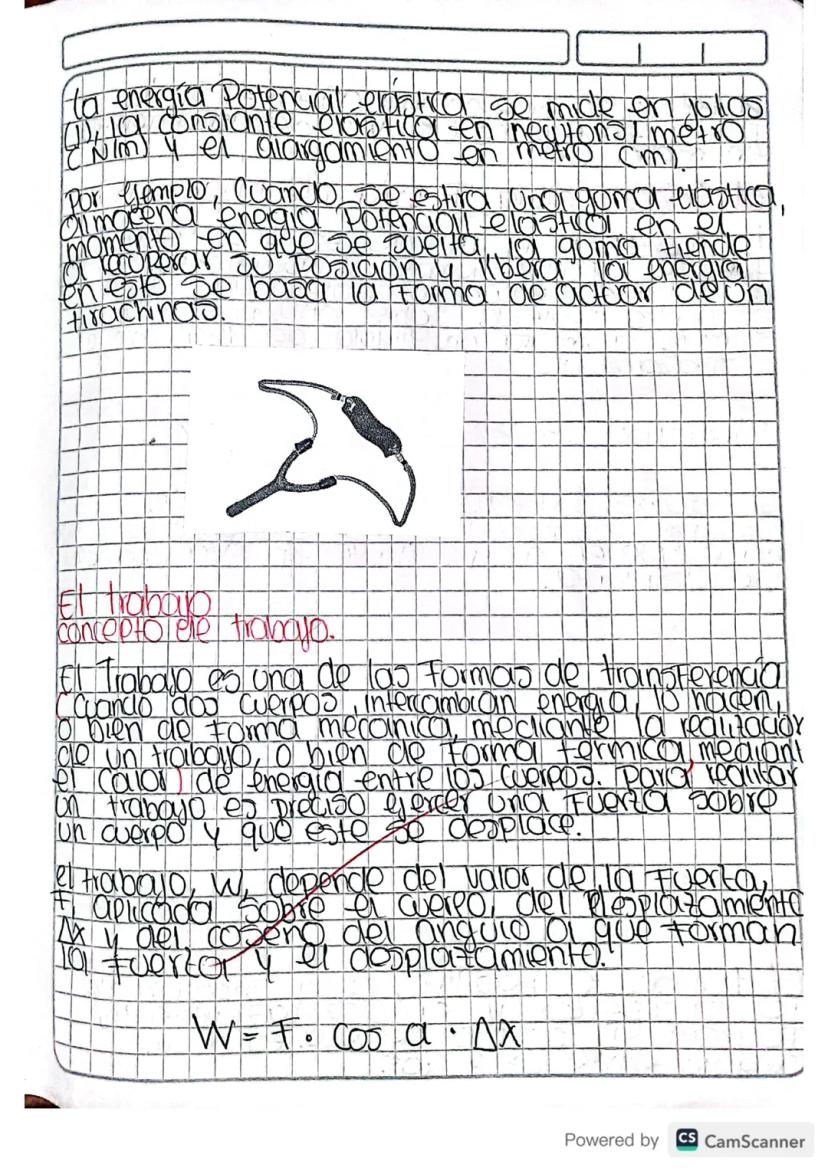 La energía Potencial elástica se mide en julios
(J), la constante elástica en newtons/metro
(N/m) y el alargamiento en metro (m).
Por ejemplo, Cuando se estira una goma elástica,
almacena energia Potencial elástica en el
momento en que se suelta la goma tiende
a recuperar su Posición y libera la energia
en esto se basa la Forma de actuar de un
tirachinas.
El trabajo
concepto de trabajo.
El Trabajo es una de las Formas de transFerencia
Cuando dos cuerpos, intercambian energia, lo hacen,
o bien de Forma mecánica, mediante la realizacion
de un trabajo, o bien de Forma térmica, mediant
el calor) de energia entre los cuerpos. para realizar
un trabajo es preciso ejercer una Fuerza sobre
un cuerpo y que este se desplace.
el trabajo, W, depende del valor de la Fuerza,
F, aplicada sobre el cuerpo, del Desplazamiento
Δx y del coseno del angulo a que Forman
la Fuerza y el desplazamiento.
W = F · cos a · Δx
Powered by CS CamScanner